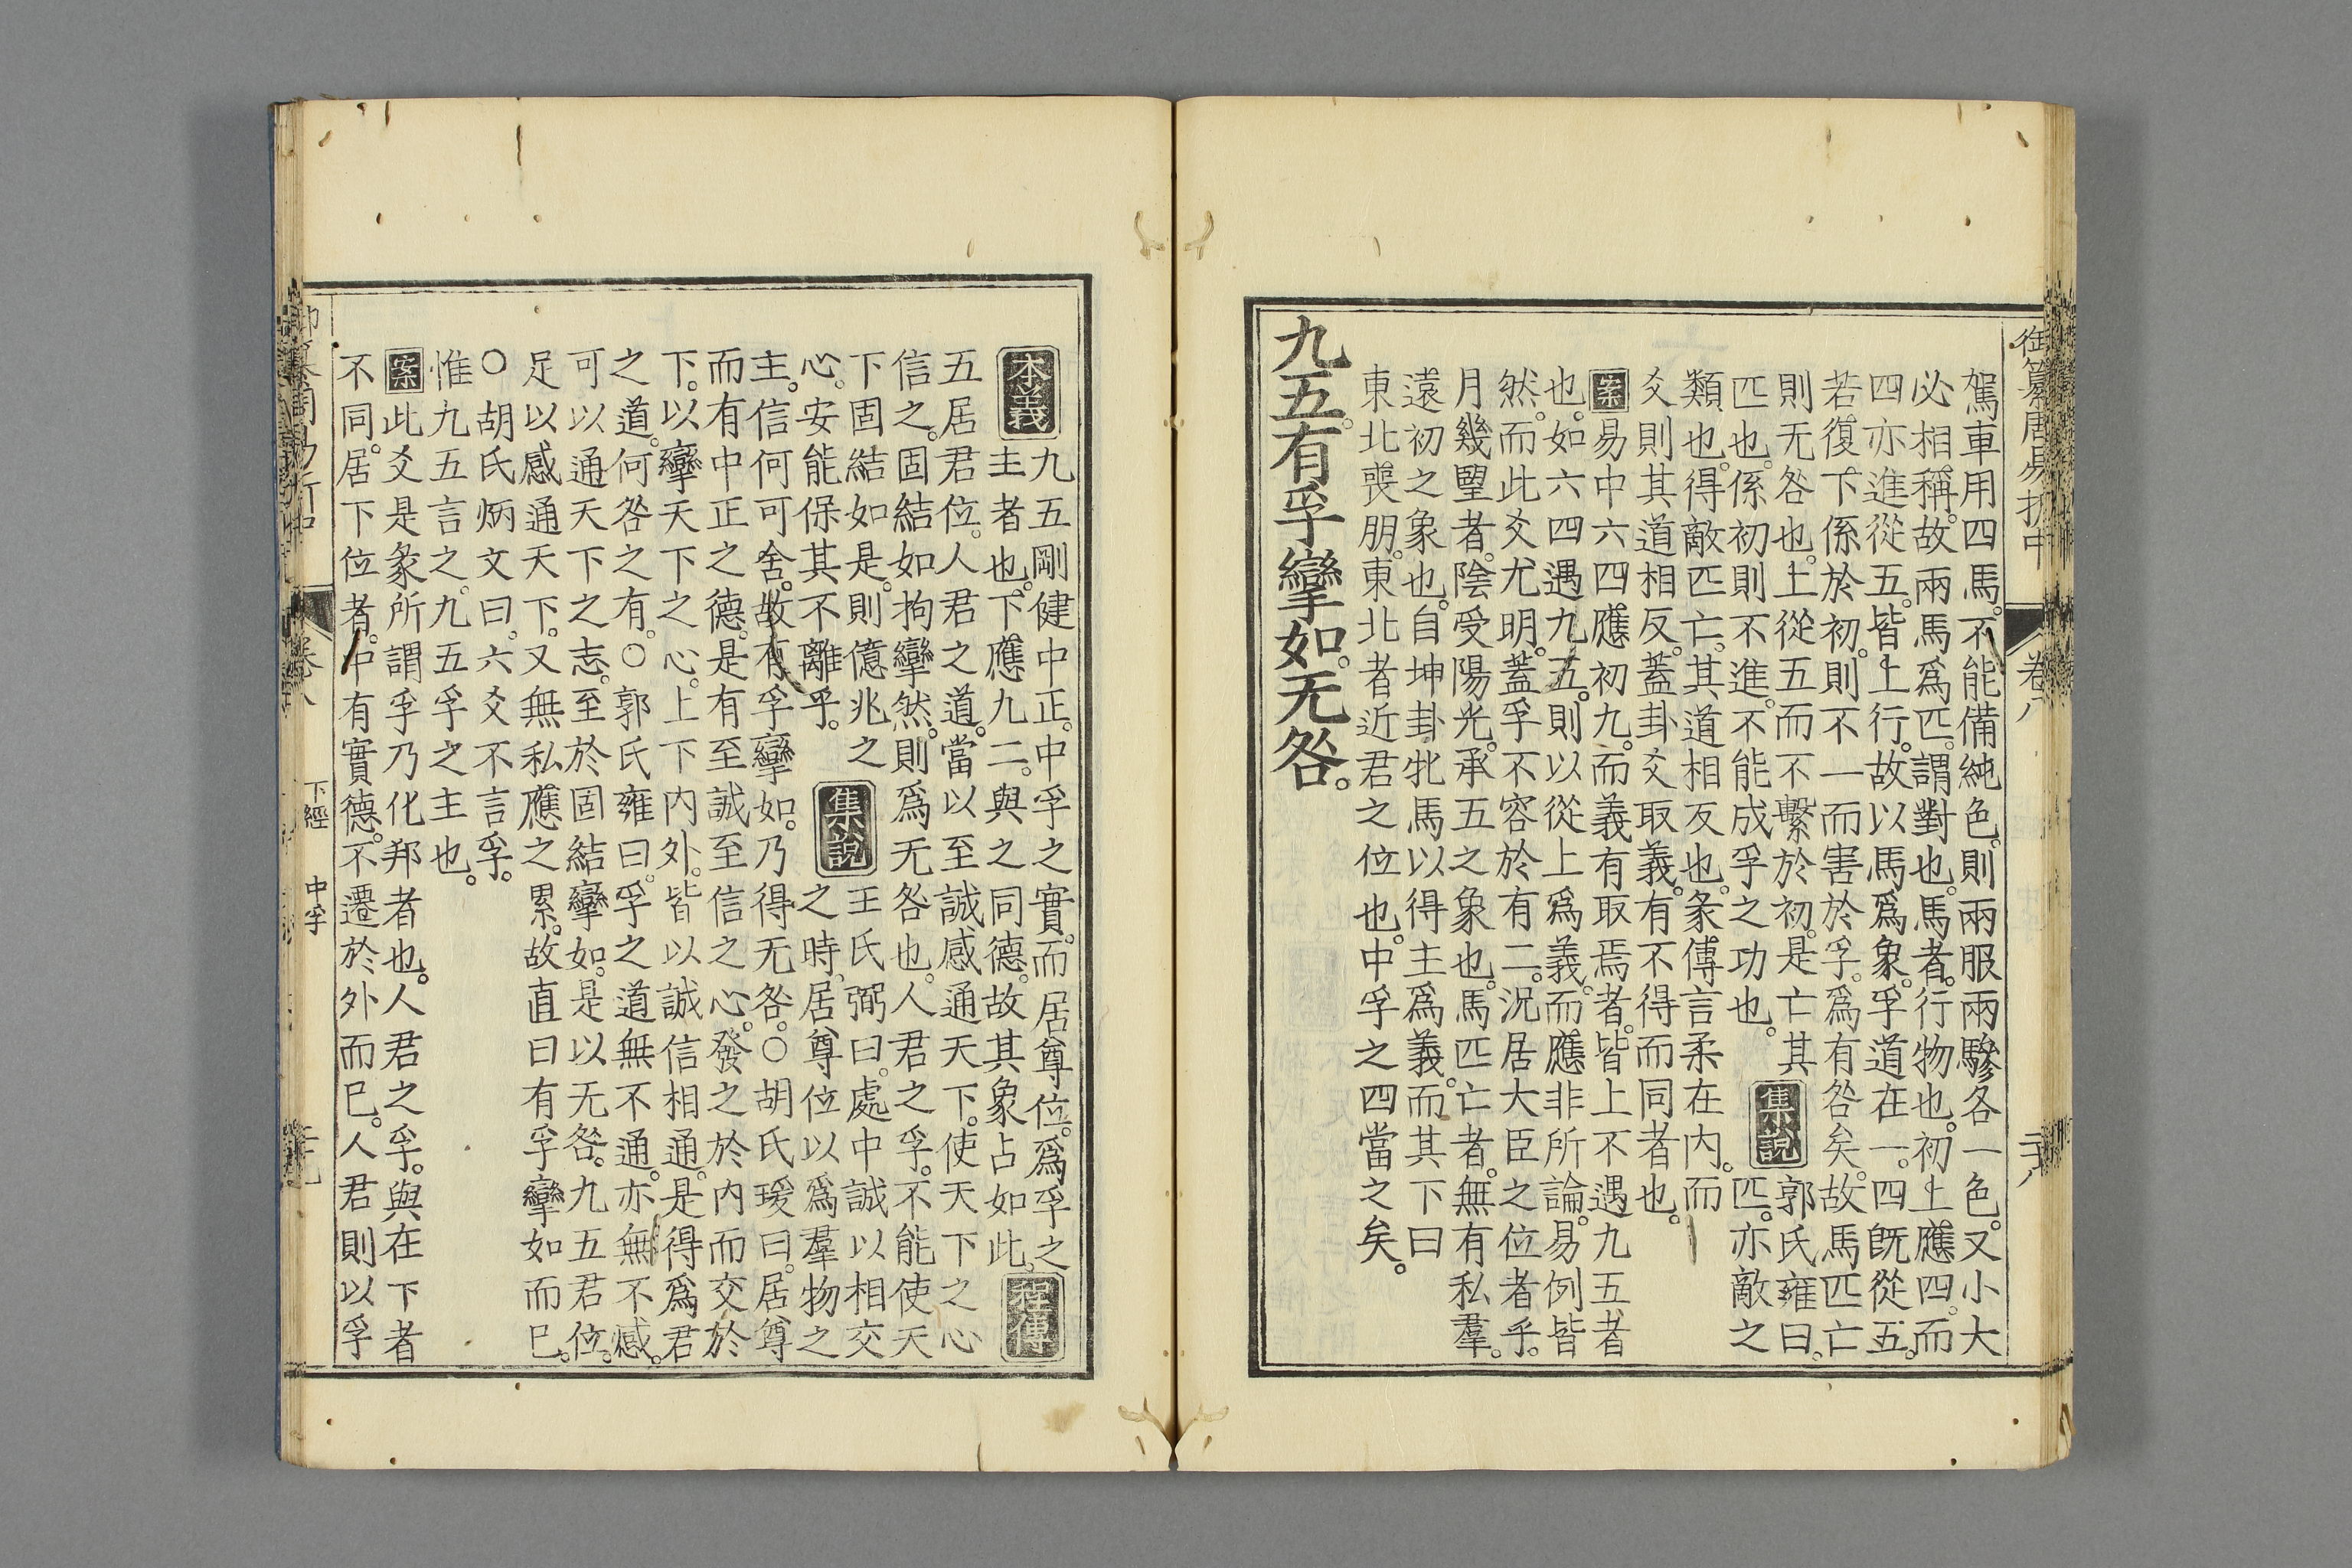 御纂周易折中 卷八
駕車用四馬。不能備純色。則兩服兩驂各一色。又小大
必相稱。故兩馬爲匹。謂對也。馬者。行物也。初上應四。而
四亦進從五。皆上行。故以馬爲象。孚道在一。四旣從五。
若復下係於初。則不一而害於孚。爲有咎矣。故馬匹亡
則无咎也。上從五而不繫於初。是亡其
匹也。係初則不進。不能成孚之功也。
集說
郭氏雍曰。
匹。亦敵之
類也。得敵匹亡。其道相反也。彖傳言柔在內。而
爻則其道相反。蓋卦爻取義。有不得而同者也。
案易中六四應初九。而義有取焉者。皆上不遇九五者
也。如六四遇九五。則以從上爲義。而應非所論。易例皆
然。而此爻尤明。蓋孚不容於有二。況居大臣之位者乎。
月幾朢者。陰受陽光。承五之象也。馬匹亡者。無有私羣。
遠初之象也。自坤卦牝馬以得主爲義。而其下曰
東北喪朋。東北者近君之位也。中孚之四當之矣。
九五。有孚攣如。无咎。
本義
九五剛健中正。中孚之實。而居尊位。爲孚之
主者也。下應九二。與之同德。故其象占如此。
程傳
五居君位。人君之道。當以至誠感通天下。使天下之心
信之。固結如拘攣然。則爲无咎也。人君之孚。不能使天
下固結如是。則億兆之
心。安能保其不離乎。
集說
王氏弼曰。處中誠以相交
之時。居尊位以爲羣物之
主。信何可舍。故有孚攣如。乃得无咎。○胡氏瑗曰。居尊
而有中正之德。是有至誠至信之心。發之於內而交於
下。以攣天下之心。上下內外。皆以誠信相通。是得爲君
之道。何咎之有。○郭氏雍曰。孚之道無不通。亦無不感。
可以通天下之志。至於固結攣如。是以无咎。九五君位。
足以感通天下。又無私應之累。故直曰有孚攣如而已。
○胡氏炳文曰。六爻不言孚。
惟九五言之。九五孚之主也。
案此爻是彖所謂孚乃化邦者也。人君之孚。與在下者
不同。居下位者。中有實德。不遷於外而已。人君則以孚
卷八 下經 中孚